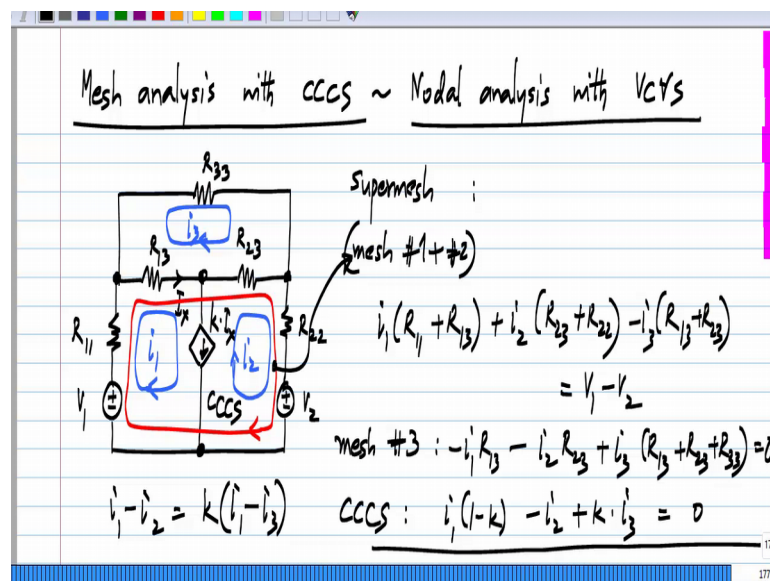 Mesh analysis with CCCS ~ Nodal analysis with VCVS
R33
i3
R13
R23
Ix
R11
i1
k·Ix
i2
R22
V1
CCCS
V2
Supermesh :
(mesh #1+#2)
i1(R11+R13) + i2(R23+R22) - i3(R13+R23)
= V1 - V2
mesh #3 : -i1R13 - i2R23 + i3(R13+R23+R33)=0
i1-i2 = k(i1-i3)
CCCS : i1(1-k) - i2 + k·i3 = 0
177